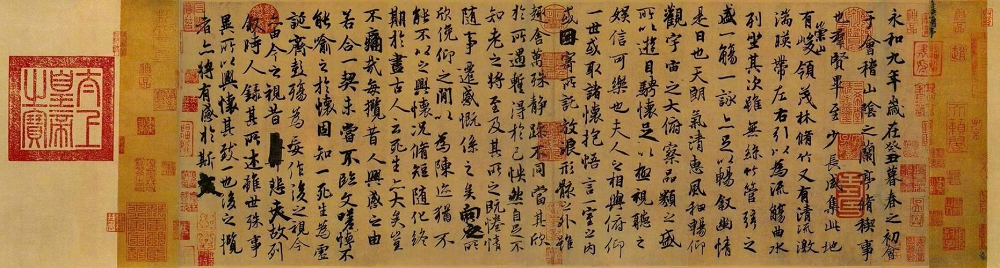 永和九年歲在癸丑暮春之初會
于會稽山陰之蘭亭脩稧事
也羣賢畢至少長咸集此地
有崇山峻領茂林脩竹又有清流激
湍暎帶左右引以為流觴曲水
列坐其次雖無絲竹管弦之
盛一觴一詠亦足以暢叙幽情
是日也天朗氣清惠風和暢仰
觀宇宙之大俯察品類之盛
所以遊目騁懷足以極視聽之
娛信可樂也夫人之相與俯仰
一世或取諸懷抱悟言一室之內
或因寄所託放浪形骸之外雖
趣舍萬殊靜躁不同當其欣
於所遇蹔得於己怏然自足不
知老之將至及其所之既惓情
隨事遷感慨係之矣向之所
欣俛仰之閒以為陳迹猶不
能不以之興懷況脩短隨化終
期於盡古人云死生亦大矣豈
不痛哉每攬昔人興感之由
若合一契未嘗不臨文嗟悼不
能喻之於懷固知一死生為虛
誕齊彭殤為妄作後之視今
亦由今之視昔悲夫故列
叙時人錄其所述雖世殊事
異所以興懷其致一也後之攬
者亦將有感於斯文
太上
皇帝
之寶